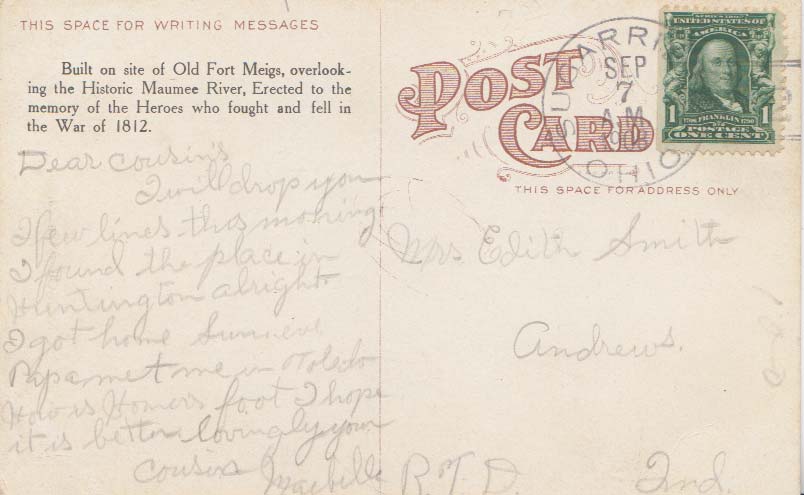 THIS SPACE FOR WRITING MESSAGES
Built on site of Old Fort Meigs, overlook-
ing the Historic Maumee River, Erected to the
memory of the Heroes who fought and fell in
the War of 1812.
Dear Cousins
I will drop you
I few lines this morning
I found the place in
Huntington alright
I got home
Papa met me in Toledo
How is Homers foot I hope
it is better lovingly your
cousin
POST
CARD
THIS SPACE FOR ADDRESS ONLY
SEP
7
A.M
OHIO
SERIES 1902
UNITED STATES OF
AMERICA
1 1
1706 FRANKLIN 1790
POSTAGE
ONE CENT
Mrs Edith Smith
Andrews.
R.F.D. Ind.